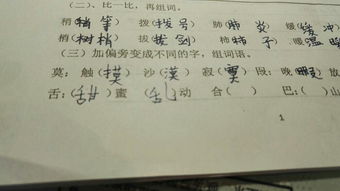 (二)、比一比,再组词。
稍(稍等) 拨(拨号) 肺(肺炎) 缓(缓冲
梢(树梢) 拔(拔剑) 柿(柿子) 暖(温暖
(三)加偏旁变成不同的字,组词语。
莫:触(摸) 沙(漠) 寂(寞) 叚:晚(暇) 放
舌:(甜)蜜 (乱)动 合( ) 巴:( )山
1